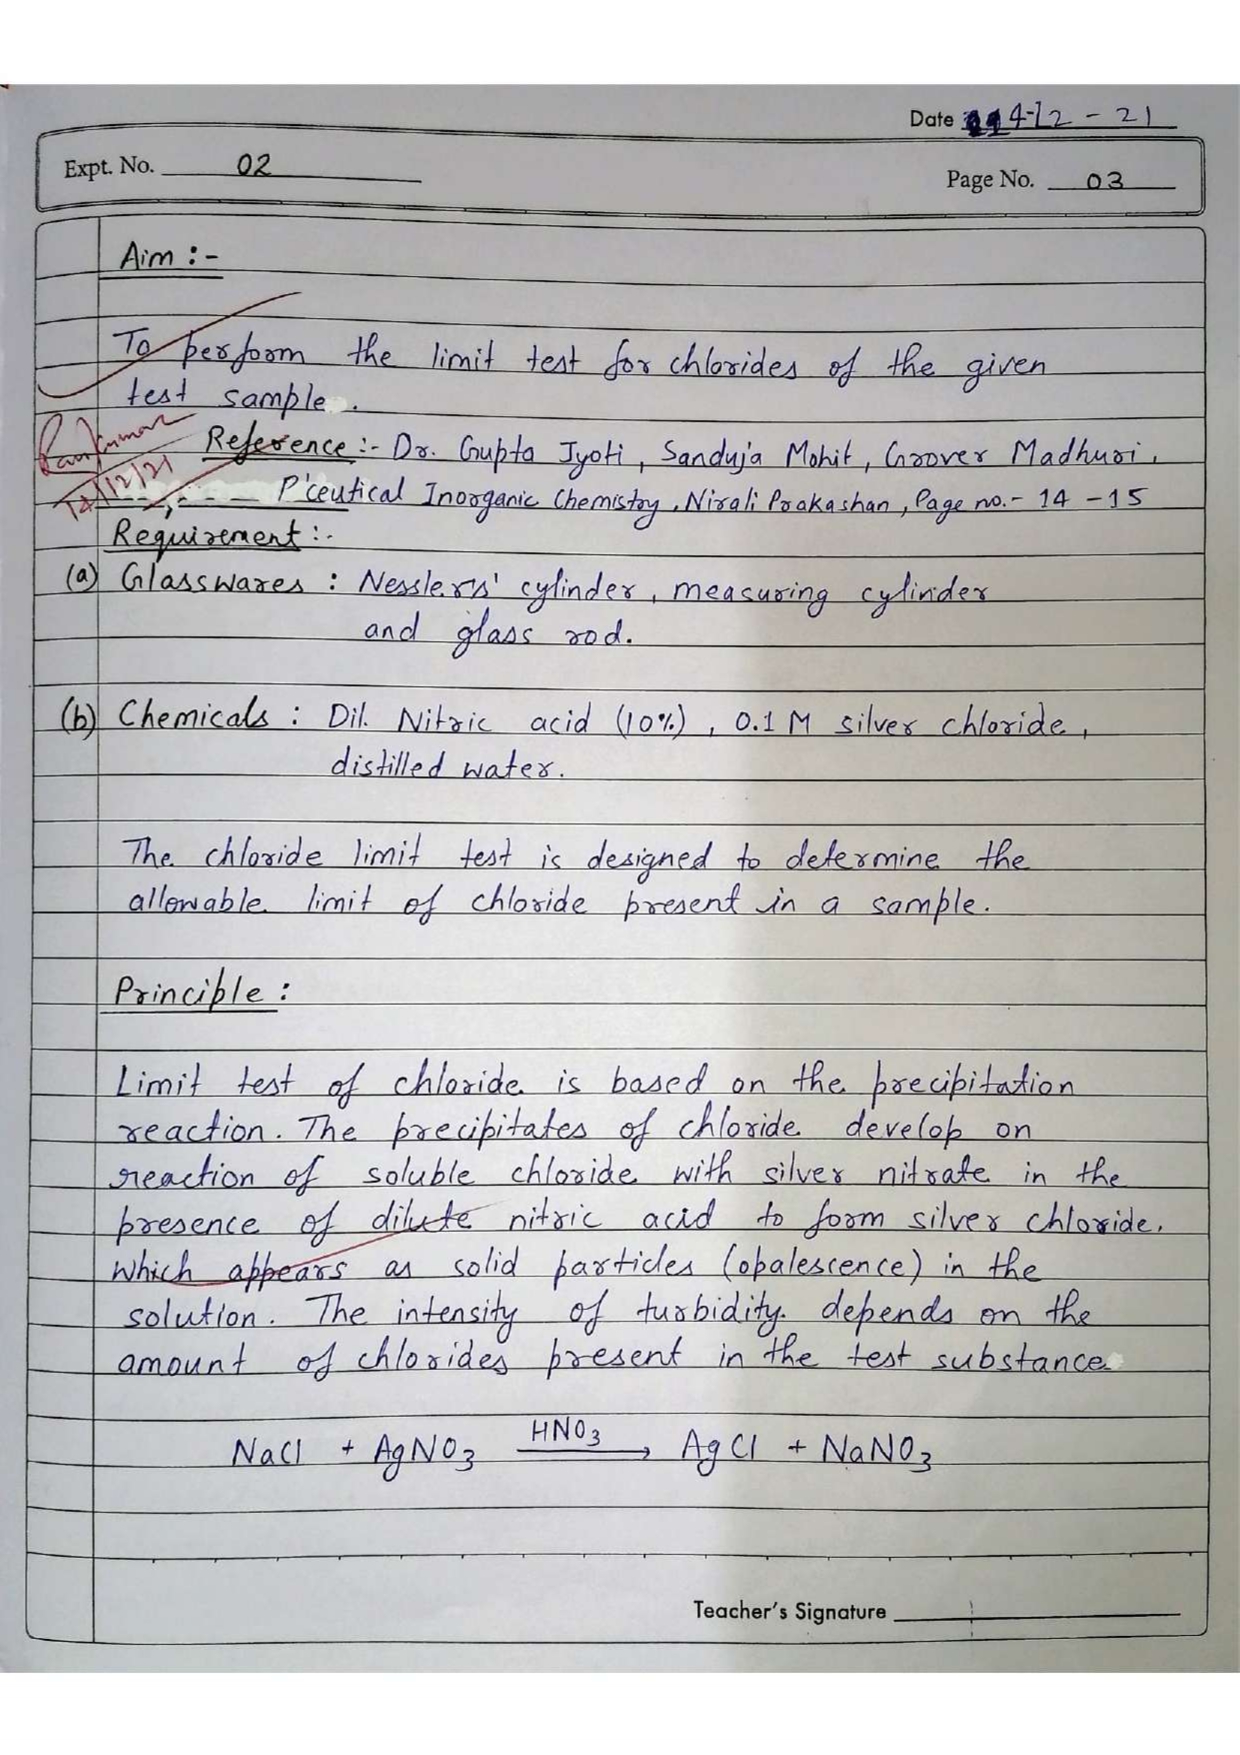 Date 4-12-21
Expt. No. 02
Page No. 03
Aim :-
To perform the limit test for chlorides of the given
test sample.
14/12/21
Reference :- Dr. Gupta Jyoti, Sanduja Mohit, Groover Madhuri,
P'ceutical Inorganic Chemistry, Nirali Prakashan, Page no.- 14 -15
Requirement :-
(a) Glasswares : Nesslers' cylinder, measuring cylinder
and glass rod.
(b) Chemicals : Dil. Nitric acid (10%), 0.1 M silver chloride,
distilled water.
The chloride limit test is designed to determine the
allowable limit of chloride present in a sample.
Principle :
Limit test of chloride is based on the precipitation
reaction. The precipitates of chloride develop on
reaction of soluble chloride with silver nitrate in the
presence of dilute nitric acid to form silver chloride.
which appears as solid particles (opalescence) in the
solution. The intensity of turbidity. depends on the
amount of chlorides present in the test substance
NaCl + AgNO3 HNO3 → AgCl + NaNO3
Teacher's Signature